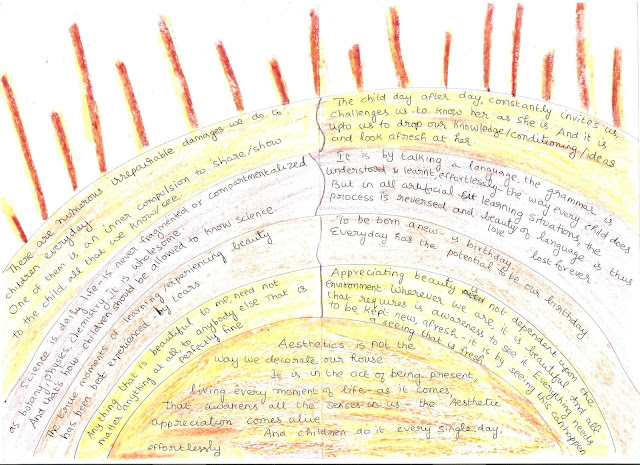 There are numerous irreparable damages we do to
children everyday.
One of them is an inner compulsion to share/show
to the child, all that we know/see.
The child day after day, constantly invites us,
challenges us to know her as she is. And it is
upto us to drop our knowledge/conditioning/ideas
and look afresh at her.
Science is daily life is never fragmented or compartmentalized
as botany, physics, chemistry. It is wholesome.
And that's how children should be allowed to know science.
It is by talking a language, the grammar is
understood & learnt, effortlessly - the way every child does
But in all artificial learning situations, the
process is reversed and beauty of language is thus
lost forever
The true moments of learning/experiencing beauty
has been best experienced by tears
To be born anew - is birthday,
Everyday has the potential to be our birthday
Anything that is beautiful to me, need not
matter anything at all to anybody else. That is
perfectly fine
Appreciating beauty is not dependent upon the
environment. Wherever we are, it is beautiful. And all
that requires is awareness to see it. Everything needs
to be kept new, afresh - it is by seeing this can happen
a seeing that is fresh
Aesthetics is not the
way we decorate our house
It is in the act of being present,
living every moment of life - as it comes,
That awakens all the senses in us - the Aesthetic
appreciation comes alive
And children do it every single day,
effortlessly